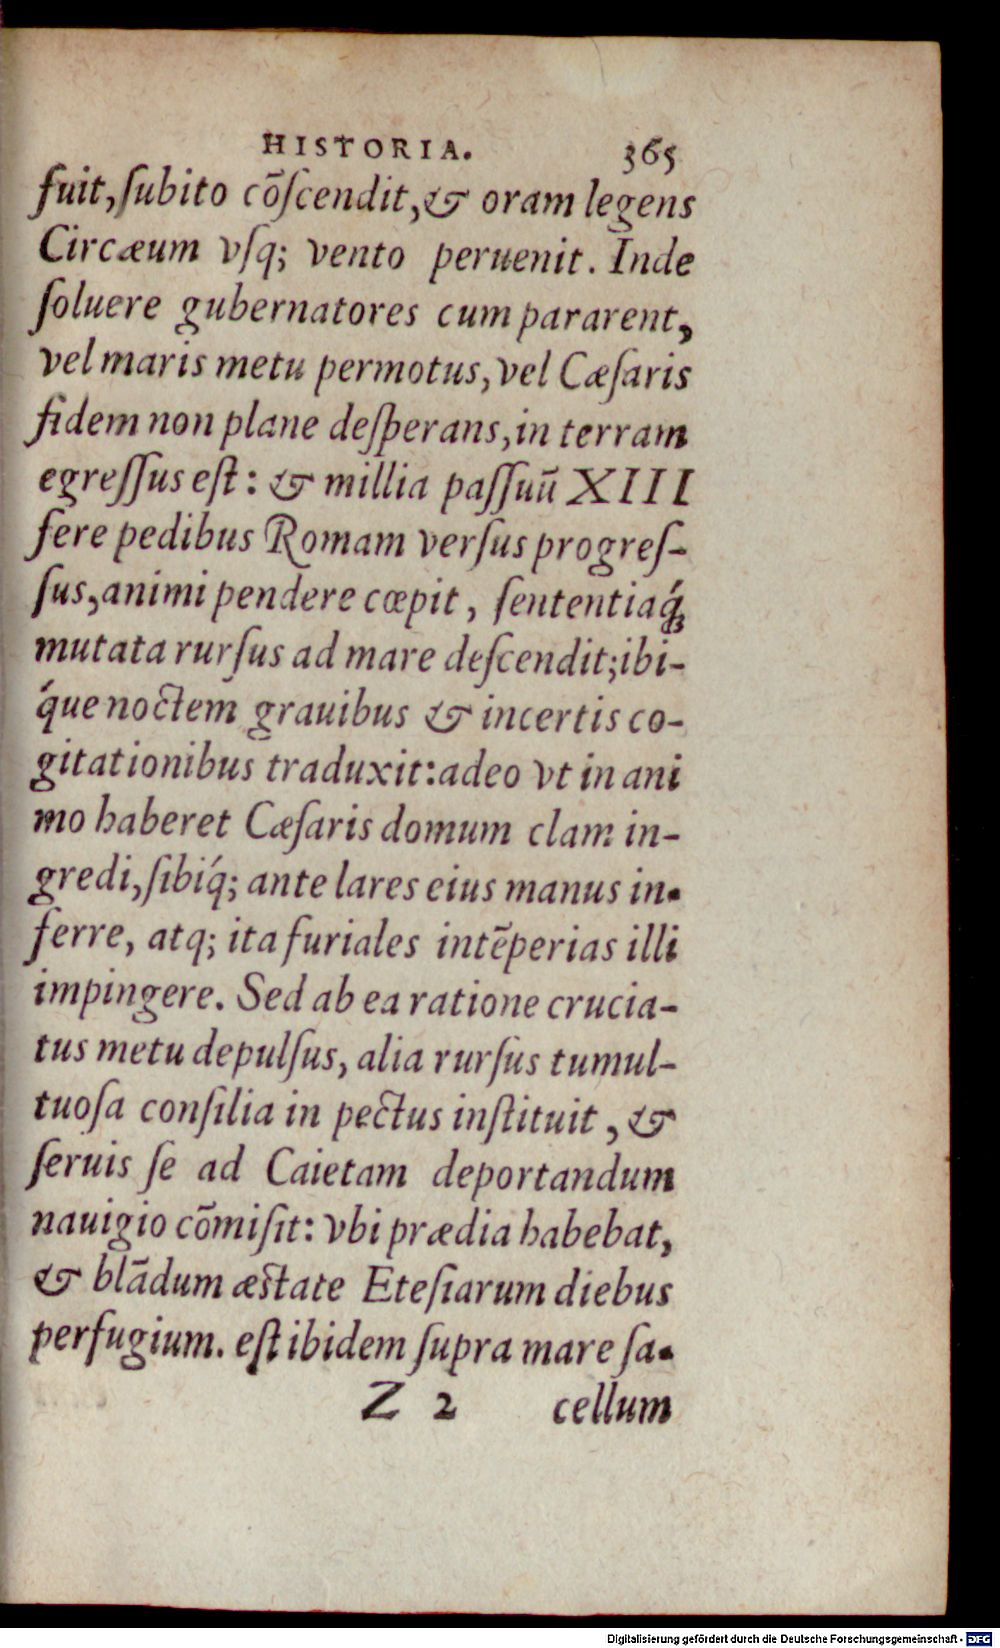 HISTORIA. 365
fuit, ſubito cõſcendit, & oram legens
Circæum vſq; vento peruenit. Inde
ſoluere gubernatores cum pararent,
vel maris metu permotus, vel Cæſaris
fidem non plane deſperans, in terram
egreſſus eſt: & millia paſſuũ XIII
fere pedibus Romam verſus progreſ-
ſus, animi pendere cœpit, ſententiaq́ꝫ
mutata rurſus ad mare deſcendit; ibi-
q́ue noctem grauibus & incertis co-
gitationibus traduxit: adeo vt in ani
mo haberet Cæſaris domum clam in-
gredi, ſibiq́; ante lares eius manus in-
ferre, atq; ita furiales intẽperias illi
impingere. Sed ab ea ratione crucia-
tus metu depulſus, alia rurſus tumul-
tuoſa conſilia in pectus inſtituit, &
ſeruis ſe ad Caietam deportandum
nauigio cõmiſit: vbi prædia habebat,
& blãdum æſtate Eteſiarum diebus
perfugium. eſt ibidem ſupra mare ſa-
Z 2 cellum
Digitalisierung gefördert durch die Deutsche Forschungsgemeinschaft - DFG